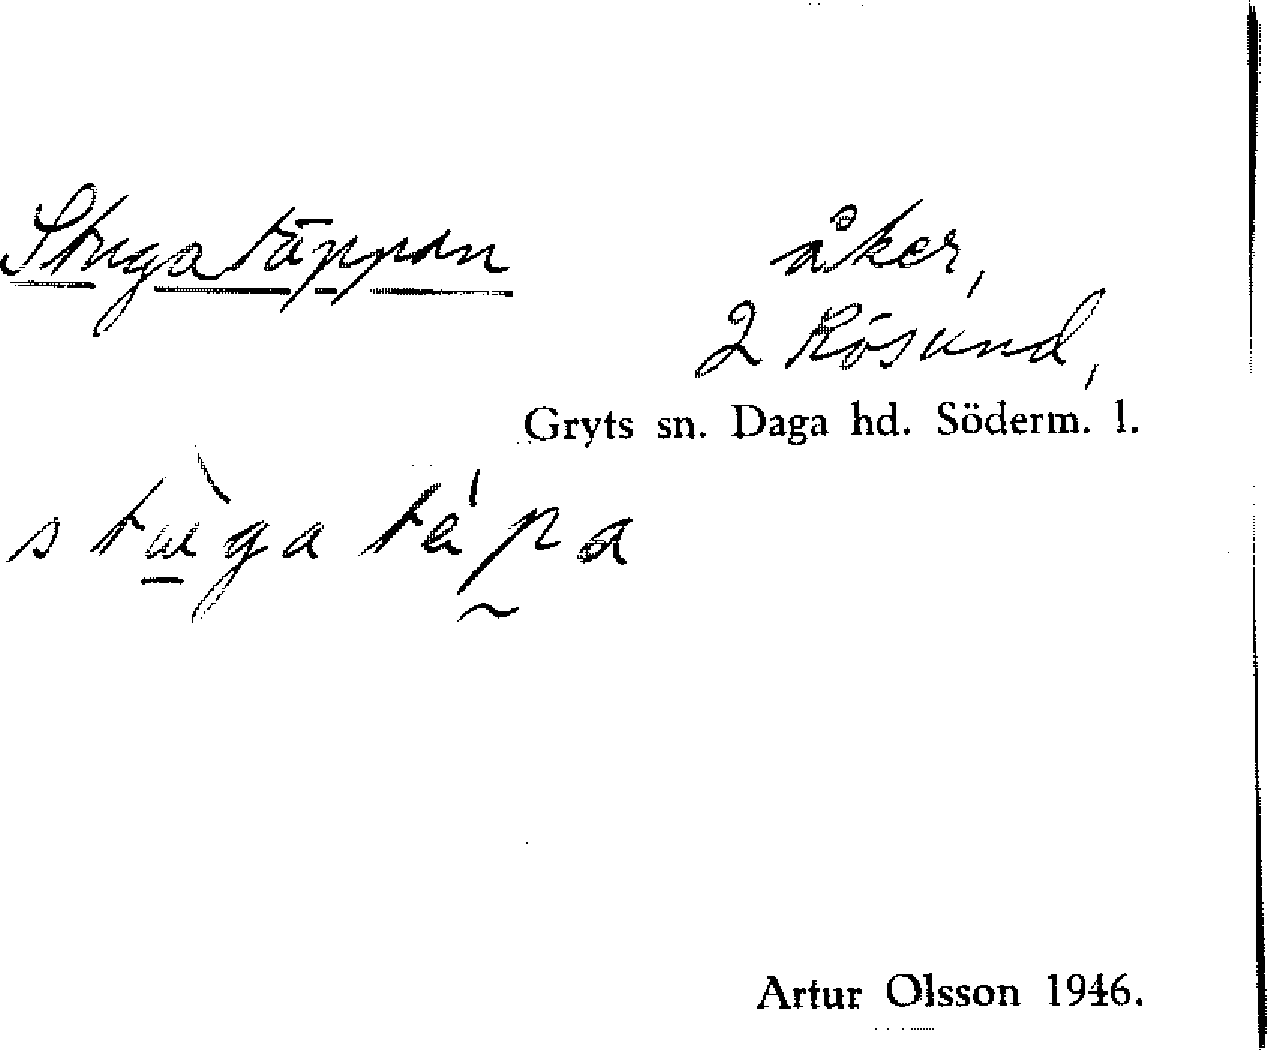 Stugatäppan
åker,
2 Rösund,
Gryts sn. Daga hd. Söderm. l.
Artur Olsson 1946.